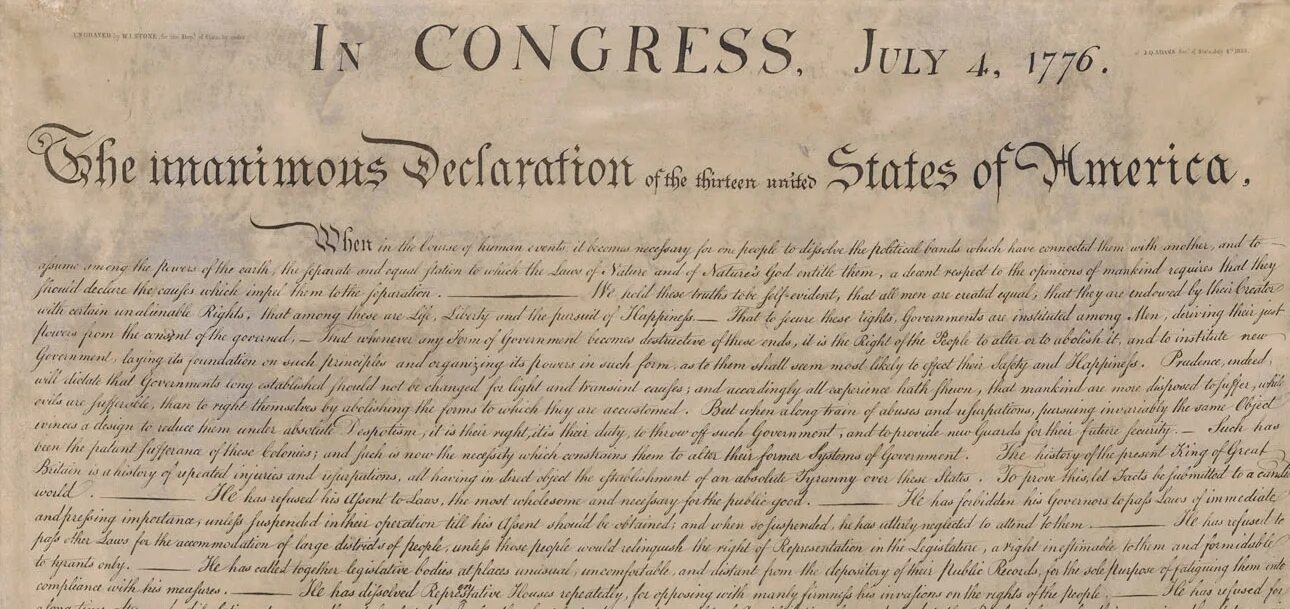 ENGRAVED by W.I.STONE, for the Dept. of State, by order
of J.Q.ADAMS Sec. of State, July 4th 1823.
IN CONGRESS, JULY 4, 1776.
The unanimous Declaration of the thirteen united States of America,
When in the Course of human events, it becomes necessary for one people to dissolve the political bands which have connected them with another, and to
assume among the powers of the earth, the separate and equal station to which the Laws of Nature and of Nature's God entitle them, a decent respect to the opinions of mankind requires that they
should declare the causes which impel them to the separation. ——— We hold these truths to be self-evident, that all men are created equal, that they are endowed by their Creator
with certain unalienable Rights, that among these are Life, Liberty and the pursuit of Happiness.— That to secure these rights, Governments are instituted among Men, deriving their just
powers from the consent of the governed, — That whenever any Form of Government becomes destructive of these ends, it is the Right of the People to alter or to abolish it, and to institute new
Government, laying its foundation on such principles and organizing its powers in such form, as to them shall seem most likely to effect their Safety and Happiness. Prudence, indeed,
will dictate that Governments long established should not be changed for light and transient causes; and accordingly all experience hath shewn, that mankind are more disposed to suffer, while
evils are sufferable, than to right themselves by abolishing the forms to which they are accustomed. But when a long train of abuses and usurpations, pursuing invariably the same Object
evinces a design to reduce them under absolute Despotism, it is their right, it is their duty, to throw off such Government, and to provide new Guards for their future security.— Such has
been the patient sufferance of these Colonies; and such is now the necessity which constrains them to alter their former Systems of Government. The history of the present King of Great
Britain is a history of repeated injuries and usurpations, all having in direct object the establishment of an absolute Tyranny over these States. To prove this, let Facts be submitted to a candid
world. ——— He has refused his Assent to Laws, the most wholesome and necessary for the public good. ——— He has forbidden his Governors to pass Laws of immediate
and pressing importance, unless suspended in their operation till his Assent should be obtained; and when so suspended, he has utterly neglected to attend to them. ——— He has refused to
pass other Laws for the accommodation of large districts of people, unless those people would relinquish the right of Representation in the Legislature, a right inestimable to them and formidable
to tyrants only. ——— He has called together legislative bodies at places unusual, uncomfortable, and distant from the depository of their Public Records, for the sole purpose of fatiguing them into
compliance with his measures. ——— He has dissolved Representative Houses repeatedly, for opposing with manly firmness his invasions on the rights of the people. ——— He has refused for